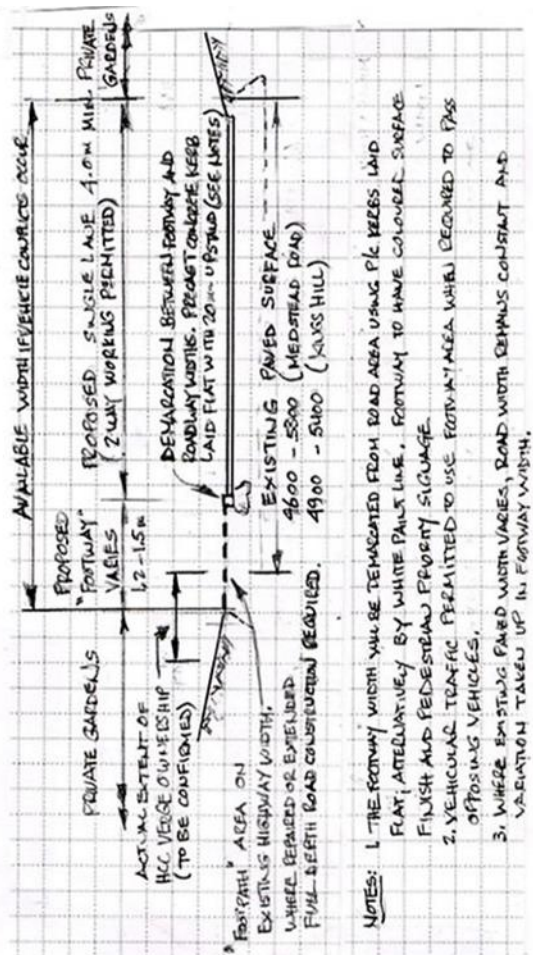 AVAILABLE WIDTH IF VEHICLE CONFLICTS OCCUR
PRIVATE GARDENS
PROPOSED
"FOOTWAY"
VARIES
1.2 - 1.5m
PROPOSED SINGLE LANE 4.0m MIN.
(2 WAY WORKING PERMITTED)
PRIVATE
GARDENS
ACTUAL EXTENT OF
HCC VERGE OWNERSHIP
(TO BE CONFIRMED)
DEMARCATION BETWEEN FOOTWAY AND
ROADWAY WIDTHS. PRECAST CONCRETE KERB
LAID FLAT WITH 20mm UPSTAND (SEE NOTES)
"FOOTPATH" AREA ON
EXISTING HIGHWAY WIDTH.
WHERE REPAIRED OR EXTENDED
FULL DEPTH ROAD CONSTRUCTION REQUIRED.
EXISTING PAVED SURFACE
4600 - 5800 (MEDSTEAD ROAD)
4900 - 5400 (KINGS HILL)
NOTES: 1. THE FOOTWAY WIDTH WILL BE DEMARCATED FROM ROAD AREA USING P/C KERBS LAID
FLAT; ALTERNATIVELY BY WHITE PAINT LINE. FOOTWAY TO HAVE COLOURED SURFACE
FINISH AND PEDESTRIAN PRIORITY SIGNAGE.
2. VEHICULAR TRAFFIC PERMITTED TO USE FOOTWAY AREA WHEN REQUIRED TO PASS
OPPOSING VEHICLES.
3. WHERE EXISTING PAVED WIDTH VARIES, ROAD WIDTH REMAINS CONSTANT AND
VARIATION TAKEN UP IN FOOTWAY WIDTH.